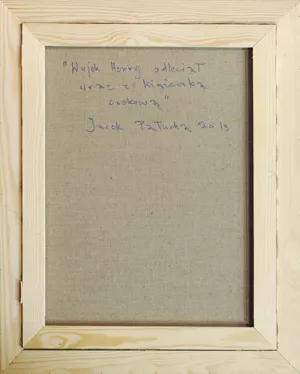 "Wujek Henry odleciał
wraz z
cukrową"
Jacek Pałucha 2019